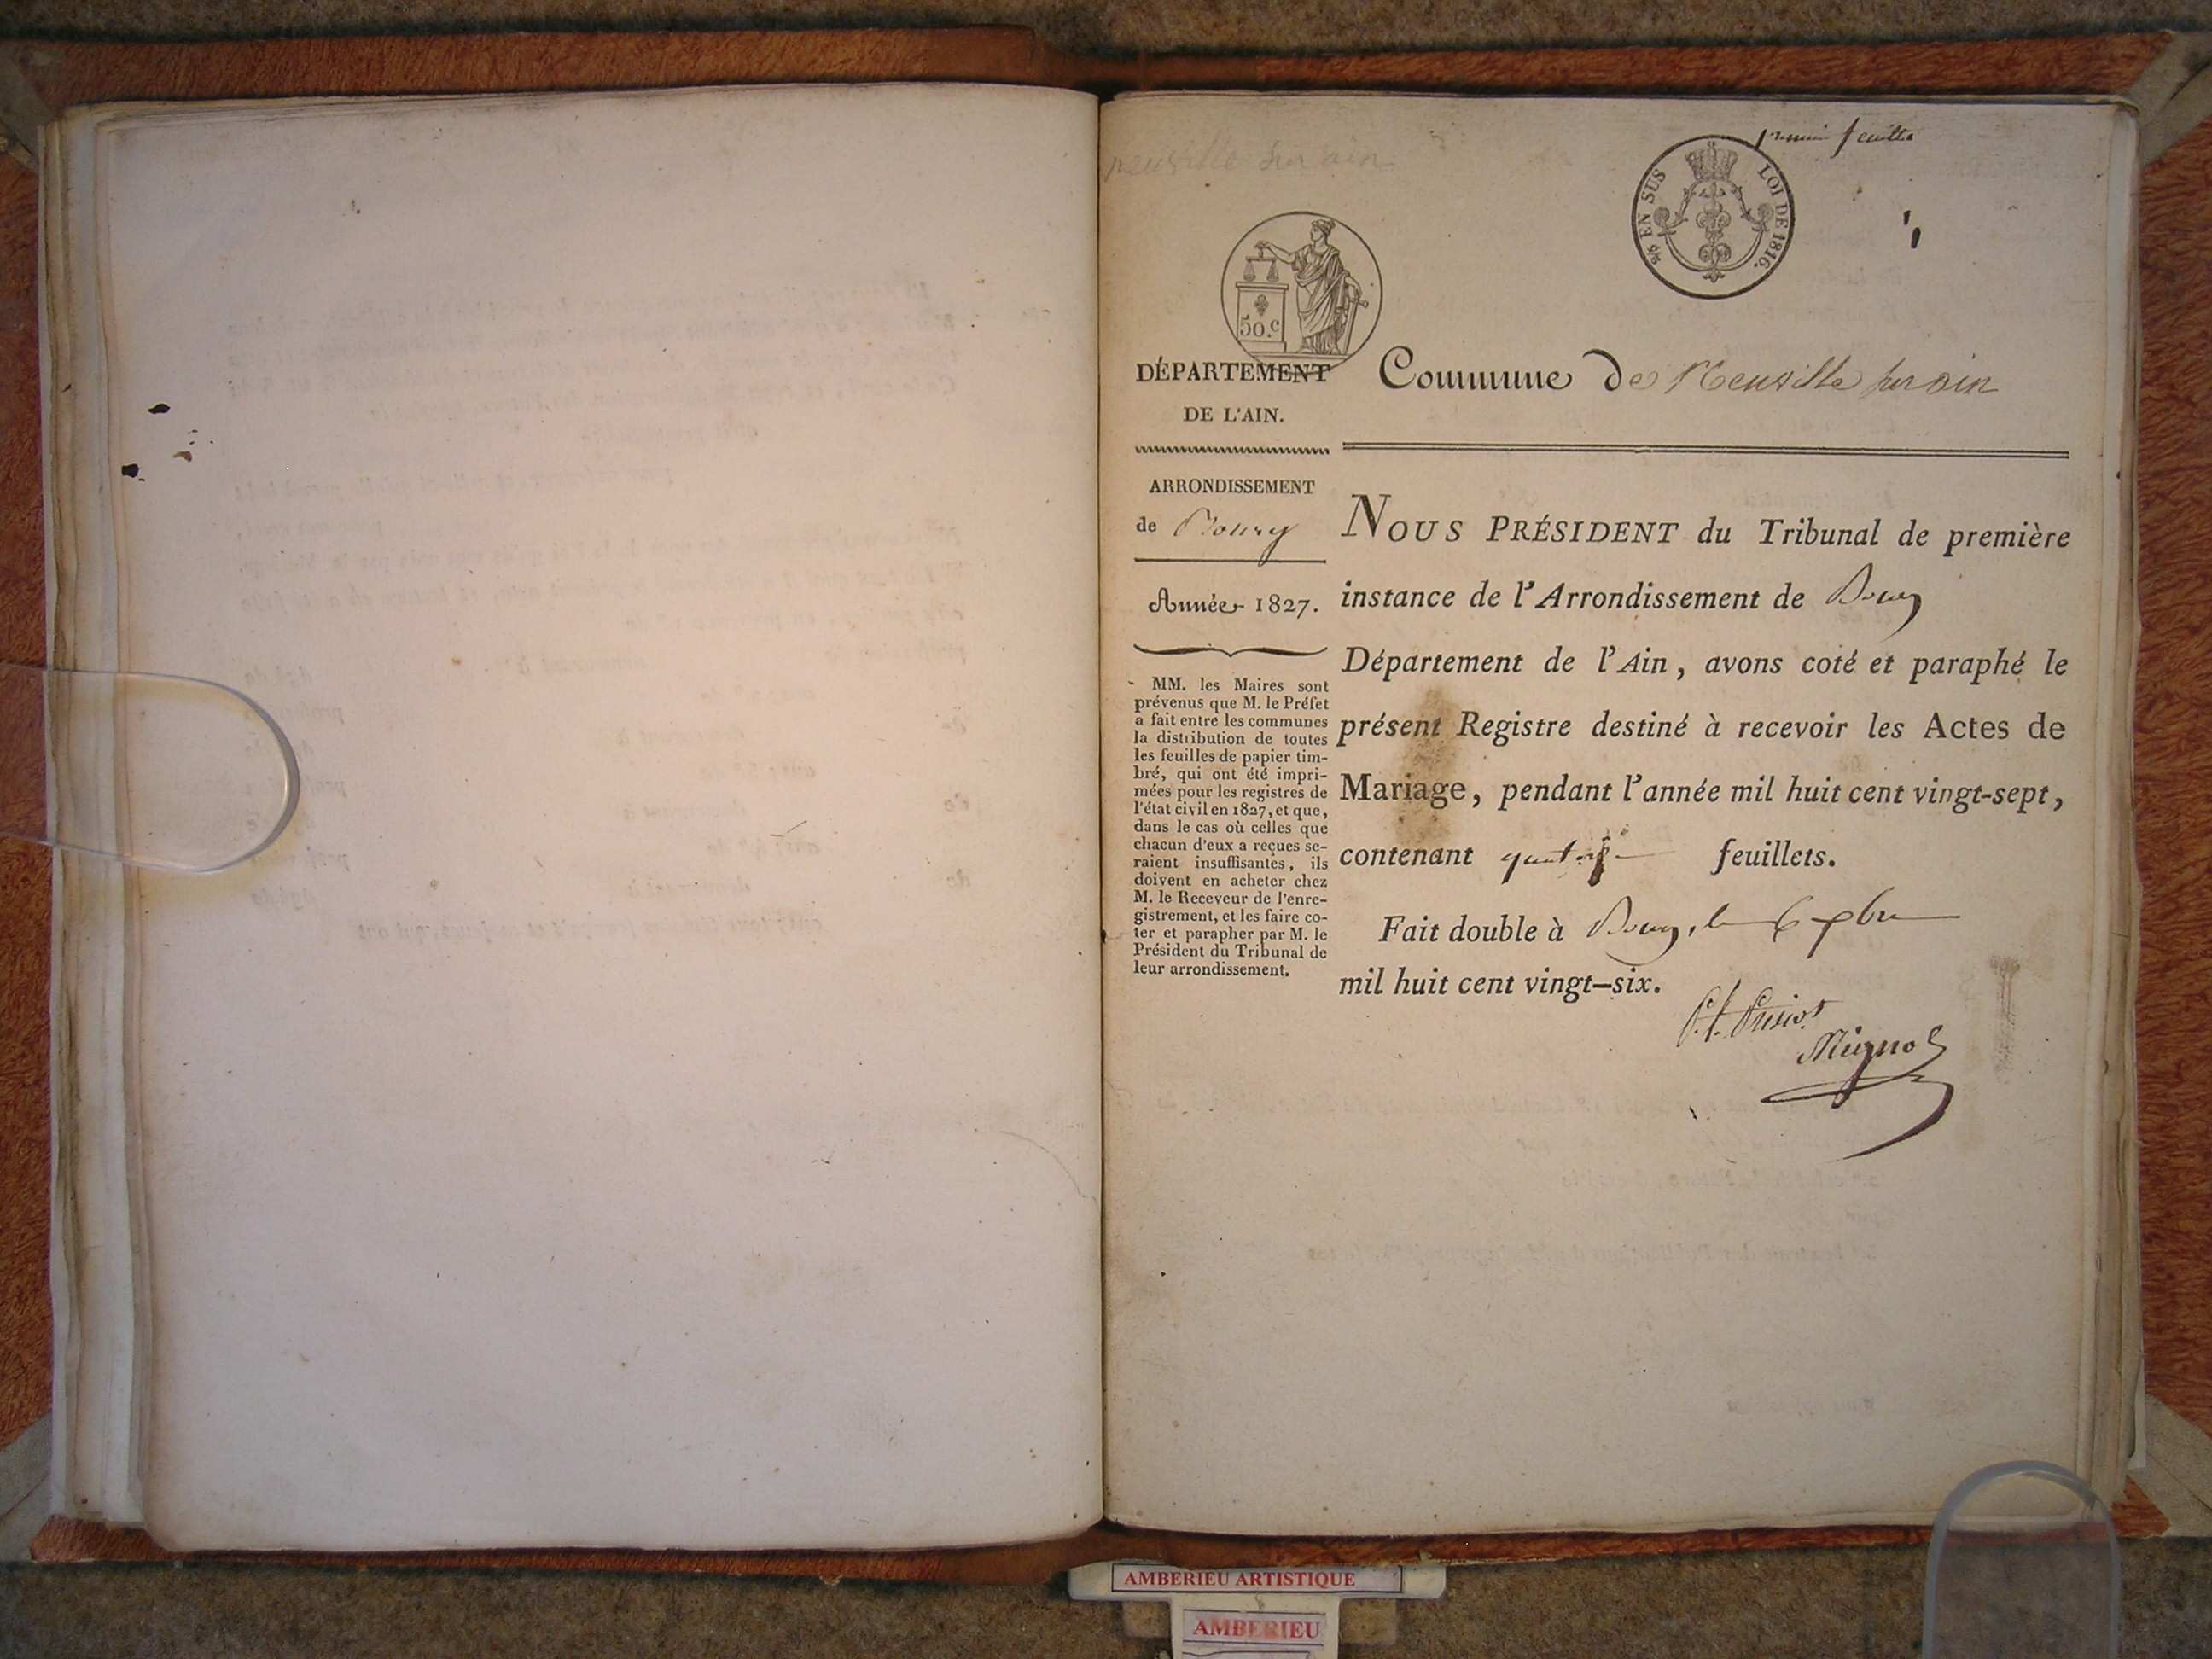 premier feuillet
neuville sur ain
EN SUS LOI DE 1816.
50.c
DÉPARTEMENT
DE L'AIN.
Commune de Neuville sur ain
ARRONDISSEMENT
de Bourg
Année 1827.
MM. les Maires sont
prévenus que M. le Préfet
a fait entre les communes
la distribution de toutes
les feuilles de papier tim-
bré, qui ont été impri-
mées pour les registres de
l'état civil en 1827, et que,
dans le cas où celles que
chacun d'eux a reçues se-
raient insuffisantes, ils
doivent en acheter chez
M. le Receveur de l'enre-
gistrement, et les faire co-
ter et parapher par M. le
Président du Tribunal de
leur arrondissement.
NOUS PRÉSIDENT du Tribunal de première
instance de l'Arrondissement de Bourg
Département de l'Ain, avons coté et paraphé le
présent Registre destiné à recevoir les Actes de
Mariage, pendant l'année mil huit cent vingt-sept,
contenant quatorze feuillets.
Fait double à Bourg, le 6
mil huit cent vingt-six.
AMBERIEU ARTISTIQUE
AMBERIEU